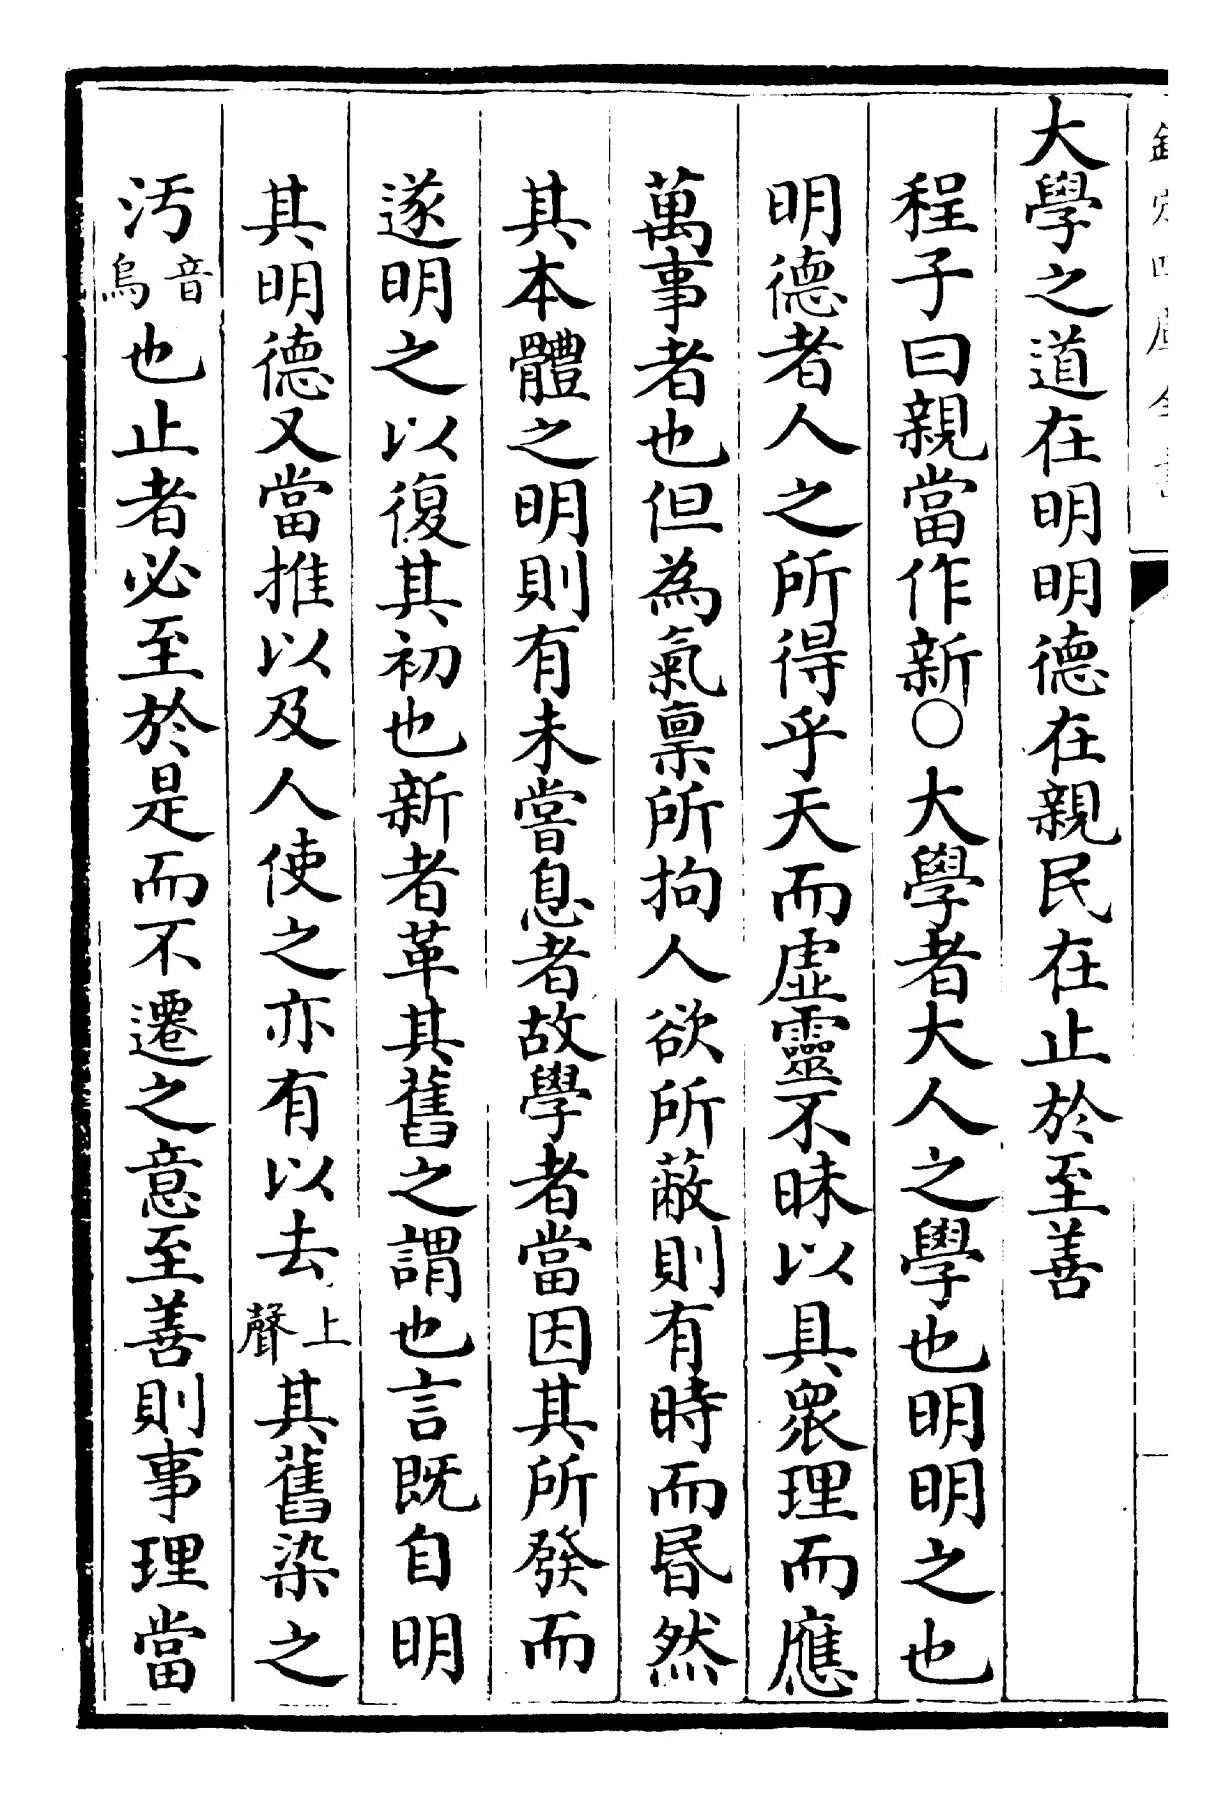 欽定四庫全書
大學之道在明明德在親民在止於至善
程子曰親當作新○大學者大人之學也明明之也
明德者人之所得乎天而虛靈不昧以具衆理而應
萬事者也但為氣稟所拘人欲所蔽則有時而昬然
其本體之明則有未嘗息者故學者當因其所發而
遂明之以復其初也新者革其舊之謂也言既自明
其明德又當推以及人使之亦有以去上聲其舊染之
汚音烏也止者必至於是而不遷之意至善則事理當